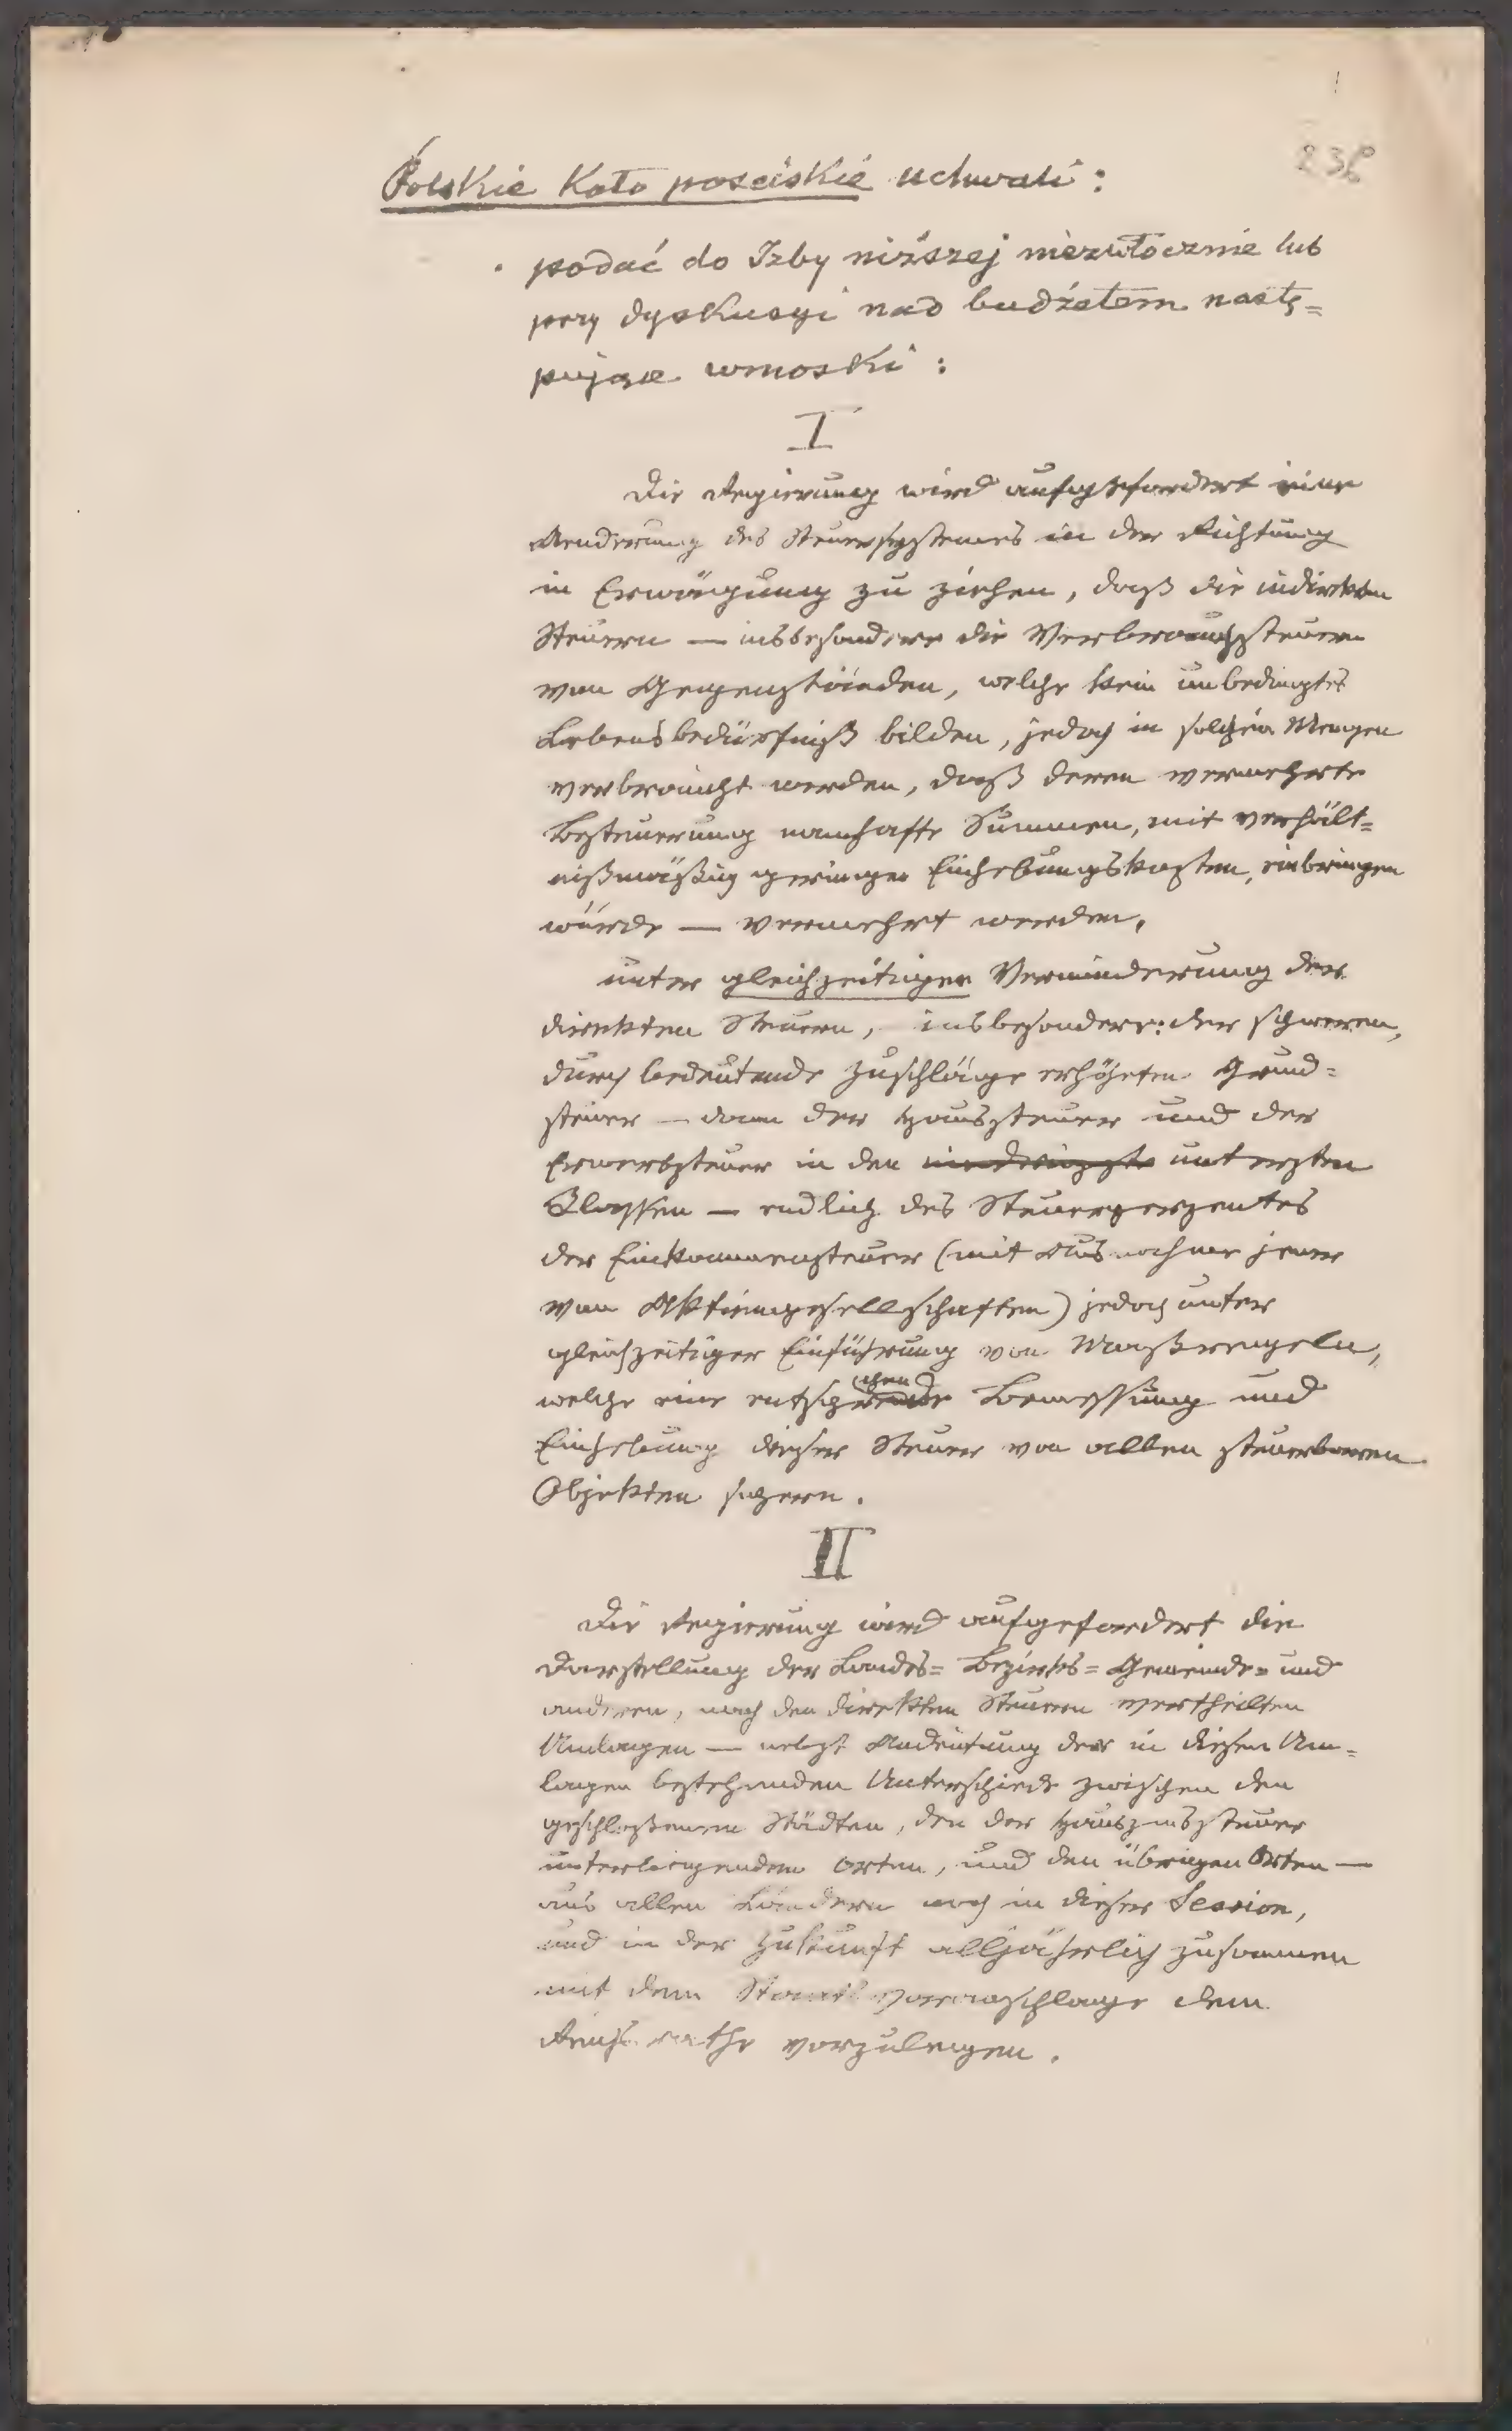 236
Polskie Koło poselskie uchwali:
podać do Izby niższej niezwłocznie lub
przy dyskusyi nad budżetem nastę=
pujące wnioski:
I
Die Regierung wird aufgefordert eine
Aenderung des Steuersystemes in der Richtung
in Erwägung zu ziehen, daß die indirekten
Steuern — insbesondere die Verbrauchssteuern
von Gegenständen, welche kein unbedingtes
Lebensbedürfniß bilden, jedoch in solchen Mengen
verbraucht werden, daß deren vermehrte
Besteuerung namhafte Summen, mit verhält=
nißmäßig geringen Einhebungskosten, einbringen
würde — vermehrt werden,
unter gleichzeitiger Verminderung der
direkten Steuern, insbesondere: der schweren,
durch bedeutende Zuschläge erhöhten Grund=
steuer — dann der Haussteuer und der
Erwerbsteuer in den untersten
Classen — endlich des Steuerperzentes
der Einkommensteuer (mit Ausnahme jener
von Aktiengesellschaften) jedoch unter
gleichzeitiger Einführung von Maßregeln,
welche eine Bemessung und
Einhebung dieser Steuer von allen steuerbaren
Objekten sichern.
II
Die Regierung wird aufgefordert die
Darstellung der Landes= Bezirks= Gemeinde= und
anderen, nach den direkten Steuern vertheilten
Umlagen — nebst Andeutung der in diesen Um=
lagen bestehenden Unterschiede zwischen den
geschlossenen Städten, den der Hauszinssteuer
unterliegenden Orten, und den übrigen Orten —
aus allen Ländern noch in dieser Session,
und in der Zukunft alljährlich zusammen
mit dem Staatsvoranschlage dem
Reichsrathe vorzulegen.